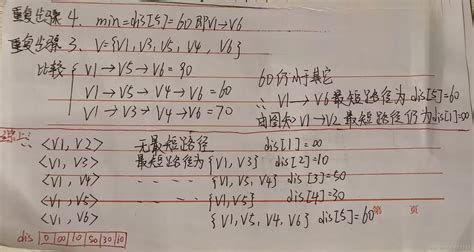 重复步骤 4. min=dis[5]=60 即V1→V6
重复步骤 3. V={V1,V3,V5,V4,V6}
比较 { V1→V5→V6=90
V1→V5→V4→V6=60
V1→V3→V4→V6=70
60仍小于其它
∴ V1→V6最短路径为dis[5]=60
由图知V1→V2最短路径仍为dis[1]=∞
综上:
<V1,V2> 无最短路径 dis[1]=∞
<V1,V3> 最短路径为 {V1,V3} dis[2]=10
<V1,V4> - - - - {V1,V5,V4} dis[3]=50
<V1,V5> - - - - {V1,V5} dis[4]=30
<V1,V6> {V1,V5,V4,V6} dis[5]=60
第 页
dis 0 ∞ 10 50 30